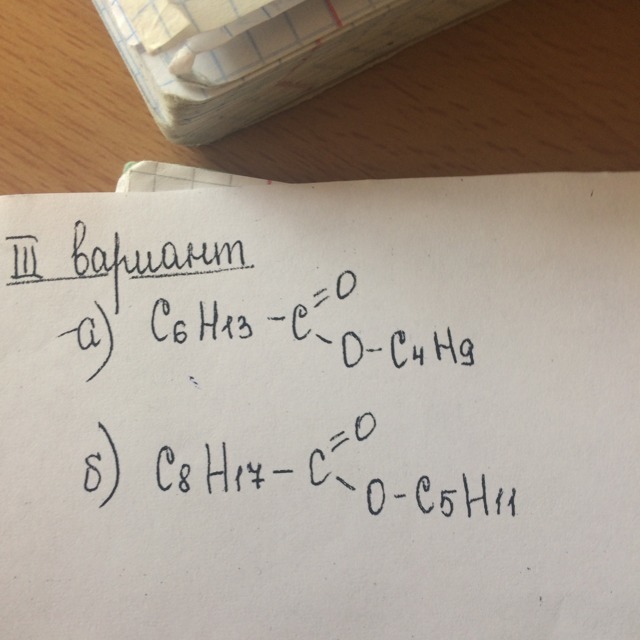 III вариант
а) C6H13-C=O
O-C4H9
б) C8H17-C=O
O-C5H11